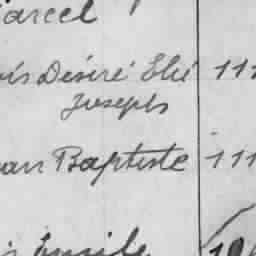 arcel
is Désiré Elié 111
Joseph
an Baptiste 111
Emile